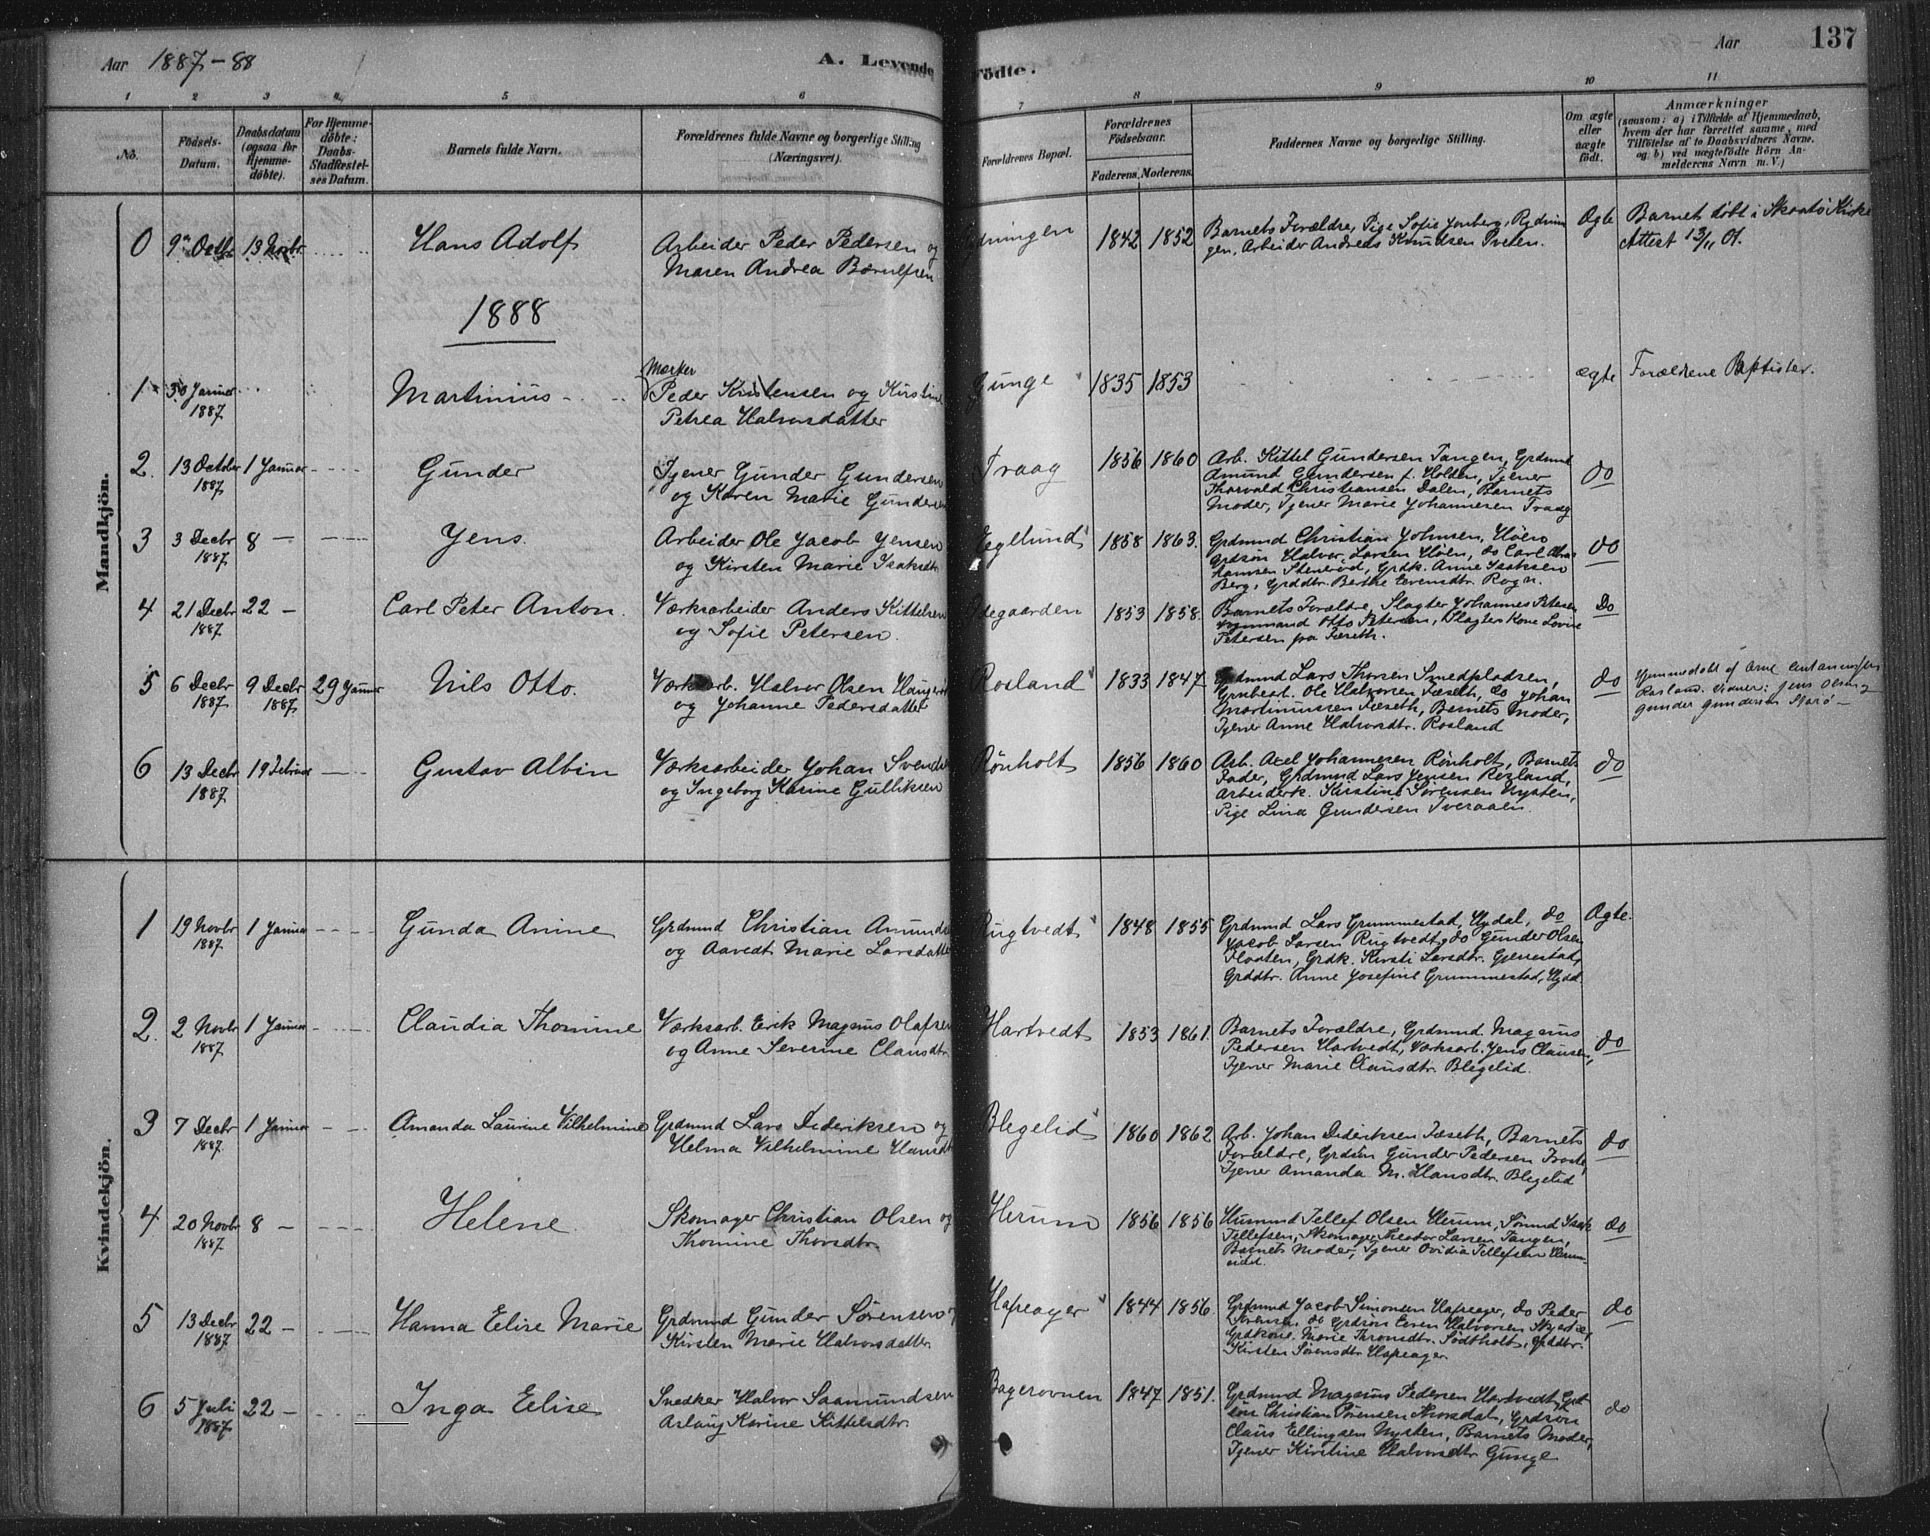 Aar 1887-88
A. Levende
födte.
Aar
137
1 2 3 4 5 6 7 8 9 10 11
No.
Födsels-Datum.
Daabsdatum (ogsaa for Hjemme-döbte).
For Hjemme-döbte: Daabs-Stadfæstel-ses Datum.
Barnets fulde Navn.
Forældrenes fulde Navne og borgerlige Stilling (Næringsvei).
Forældrenes Bopæl.
Forældrenes Födselsaar.
Faderens. Moderens.
Faddernes Navne og borgerlige Stilling.
Om ægte eller uægte födt.
Anmærkninger
(saasom: a) i Tilfælde af Hjemmedaab,
hvem der har forrettet samme, med
Tilföielse af to Daabsvidners Navne.
og b) ved uægtefödte Börn An-
melderens Navn m. V.)
Mandkjön.
0 9de Octbr 13 Novbr Hans Adolf Arbeider Peder Pedersen og
Maren Andrea Børulfsen
dningen 1842 1852 Barnets Forældre, Pige Sofie Jenberg, Rydnin
gen, Arbeider Andreas Knudsen Tveten.
Ægte Barnet døbt i Skaatø Kirke
Attest 13/11 Of.
1888
1 30 Januar 1887 Martinius
Mærker
Peder Kristensen og Kirstine
Petrea Halvorsdatter
Gunge 1835 1853 ægte Forældrene Baptister.
2 13 October 1887 1 Januar Gunder Tjener Gunder Gundersen
og Karen Marie Gundersen
Traag 1856 1860 Arb. Kittel Gundersen Tangen, Grdmnd
Amund Gundersen f. Holden, Tjener
Thorvald Christiansen Dalen, Barnets
Moder, Tjener Marie Johannesen Traag
do
3 3 Decbr 1887 8 — Jens. Arbeider Ole Jacob Jensen
og Kirsten Marie Isaksdtr
Eeglund 1858 1863. Grdmnd Christian Johnsen, Høien
Grdsøn Halvor Larsen Høen, do Carl Abra-
hamsen Stenerød, Grdk. Anne Isaksen
Berg, Grddtr. Berthe Evensdtr. Rogn.
do
4 21 Decbr 1887 22 — Carl Peter Anton. Værksarbeider Anders Kittelsen
og Sofie Petersen.
degaarden 1853 1858. Barnets Forældre, Slagter Johannes Petersen
Otto Petersen, Slagter Kone Lovise
Petersen fra Feseth.
Do
5 6 Decbr 1887 9 Decbr 1887 29 Januar Nils Otto. Værksarb. Halvor Olsen
og Johanne Pedersdatter
Rosland 1833 1847 Grdmnd Lars Thorsen Smedpladsen,
Grubearb. Ole Halvorsen Feseth, do Johan
Martinussen Feseth, Barnets Moder,
Tjener Anne Halvorsdtr. Rosland
do Hjemmedøbt af Arne
Rosland. Vidner: Jens Olsen og
Gunder Gundersen
6 13 Decbr 1887 19 Februar Gustav Albin Værksarbeider Johan Svends
og Ingeborg Karine Gulliksen
Rönholt 1856 1860 Arb. Axel Johannesen Rönholt, Barnets
Fader, Grdmnd Lars Jensen Rosland,
Arbeiderk. Kirstine Sörensen Nysten,
Pige Lina Gundersen Tveraaen.
do
Kvindekjön.
1 19 Novbr 1887 1 Januar Gunda Anine Grdmnd Christian Amunds
og Aavedt Marie Larsdatter
Rugtvedt 1848 1855 Grdmnd Lars Grummestad, Eydal, do
Jacob Larsen Rugtvedt, do Gunder Olsen
Floaten, Grdk. Kirsti Larsdtr. Gjenestad,
Grddtr. Anne Josefine Grummestad, Eydal
Ægte.
2. 2 Novbr 1887 1 Januar Claudia Thomine Værksarb. Erik Magnus Olafsen
og Anne Severine Clausdtr.
Hartvedt 1853 1861. Barnets Forældre, Grdmnd. Magnus
Pedersen Hartvedt, Værksarb. Jens Clausen,
Tjener Marie Clausdtr. Blegelid.
do
3 7 Decbr 1887. 1 Januar Amanda Laurine Vilhelmine Grdmnd Lars Dideriksen og
Helma Vilhelmine Hansdtr
Blegelid 1860 1862 Arb. Johan Dideriksen Feseth, Barnets
Forældre, Grdsøn Gunder Pedersen
Tjener Amanda M. Hansdtr. Blegelid
do
4 20 Novbr 1887. 8 — Helene Skomager Christian Olsen og
Thomine Thorsdtr.
Herum 1856 1856 Husmnd Tellef Olsen Herum, Sømnd Isak
Tellefsen, Skomager Theodor Larsen Tangen,
Barnets Moder, Tjener Ovidia Tellefsen Herum-
eidet.
do
5 13 Decbr 1887 22 — Hanna Elise Marie Grdmnd Gunder Sörensen og
Kirsten Marie Halvorsdatter.
Hafsager 1844 1856. Grdmnd Jacob Simonsen Hafsager, do Peder
Sørensen, do Grdsøn Even Halvorsen
Grdkone Marie Thronsdtr. Södtholt, Grddtr.
Kirsten Sörensdtr Hafsager
do
6 5 Juli 1887. 22 — Inga Elise Snedker Halvor Saamundsen
Aslaug Karine Kittelsdtr.
Bagerovnen 1847 1851. Grdmnd Magnus Pedersen Hartvedt, Grd-
søn Christian Sörensen Thorsdal, Grdsøn
Claus Ellingsen Nysten, Barnets Moder,
Tjener Kirstine Halvorsdtr Gunge
do